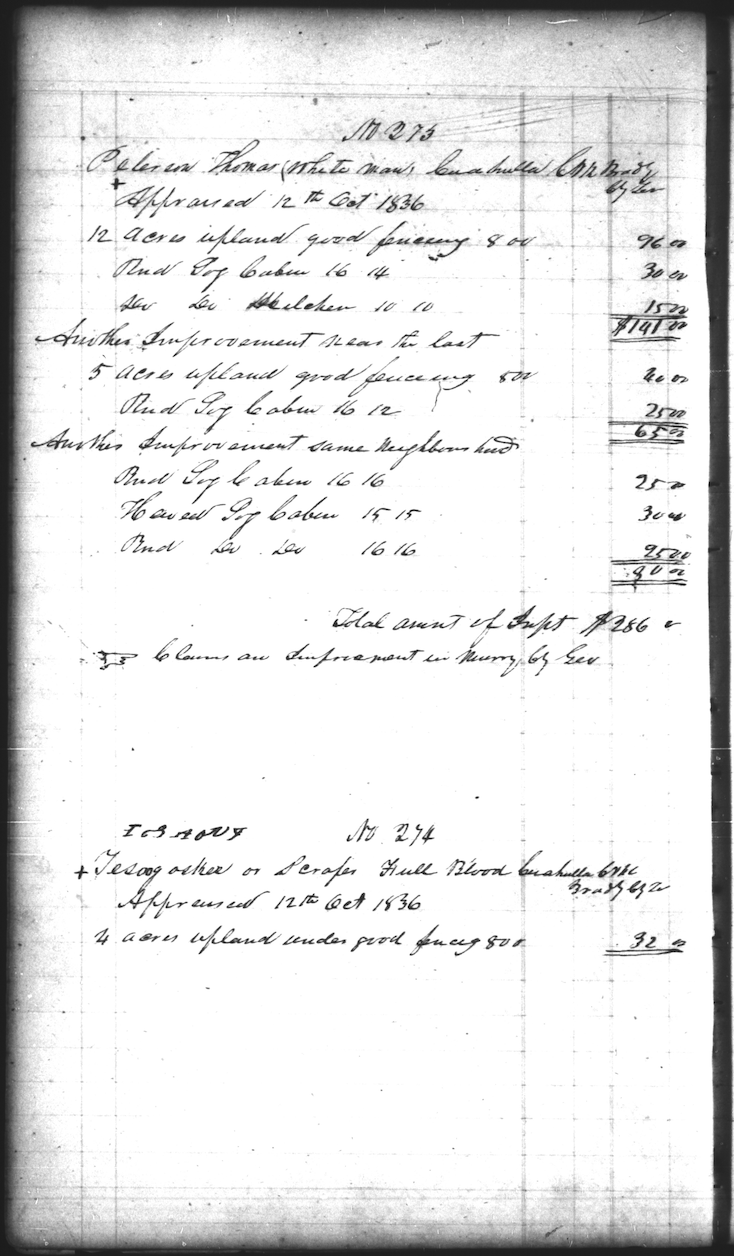 No 273
Peterson Thomas (White man) Cuahulla Crk Brady
by Geo
+
Appraised 12th Oct 1836
12 acres upland good fencing 8 00 96 00
Rnd Log Cabin 16 14 30 00
Do Do Kitchen 10 10 15 00
$141 00
Another Improvement near the last
5 acres upland good fenceing 800 40 00
Rnd Log Cabin 16 12 25 00
65 00
Another Improvement same Neighbourhood
Rnd Log Cabin 16 16 25 0
Hewed Log Cabin 15 15 30 00
Rnd Do Do 16 16 25 00
80 00
Total amnt of Impt $286
Claims an Improvement in Murry by Geo
No 274
+ Tesoogaskee or Scraper Full Blood Cuahulla Crk
Brady
Appraised 12th Oct 1836
4 acres upland under good fencing 800 32 00